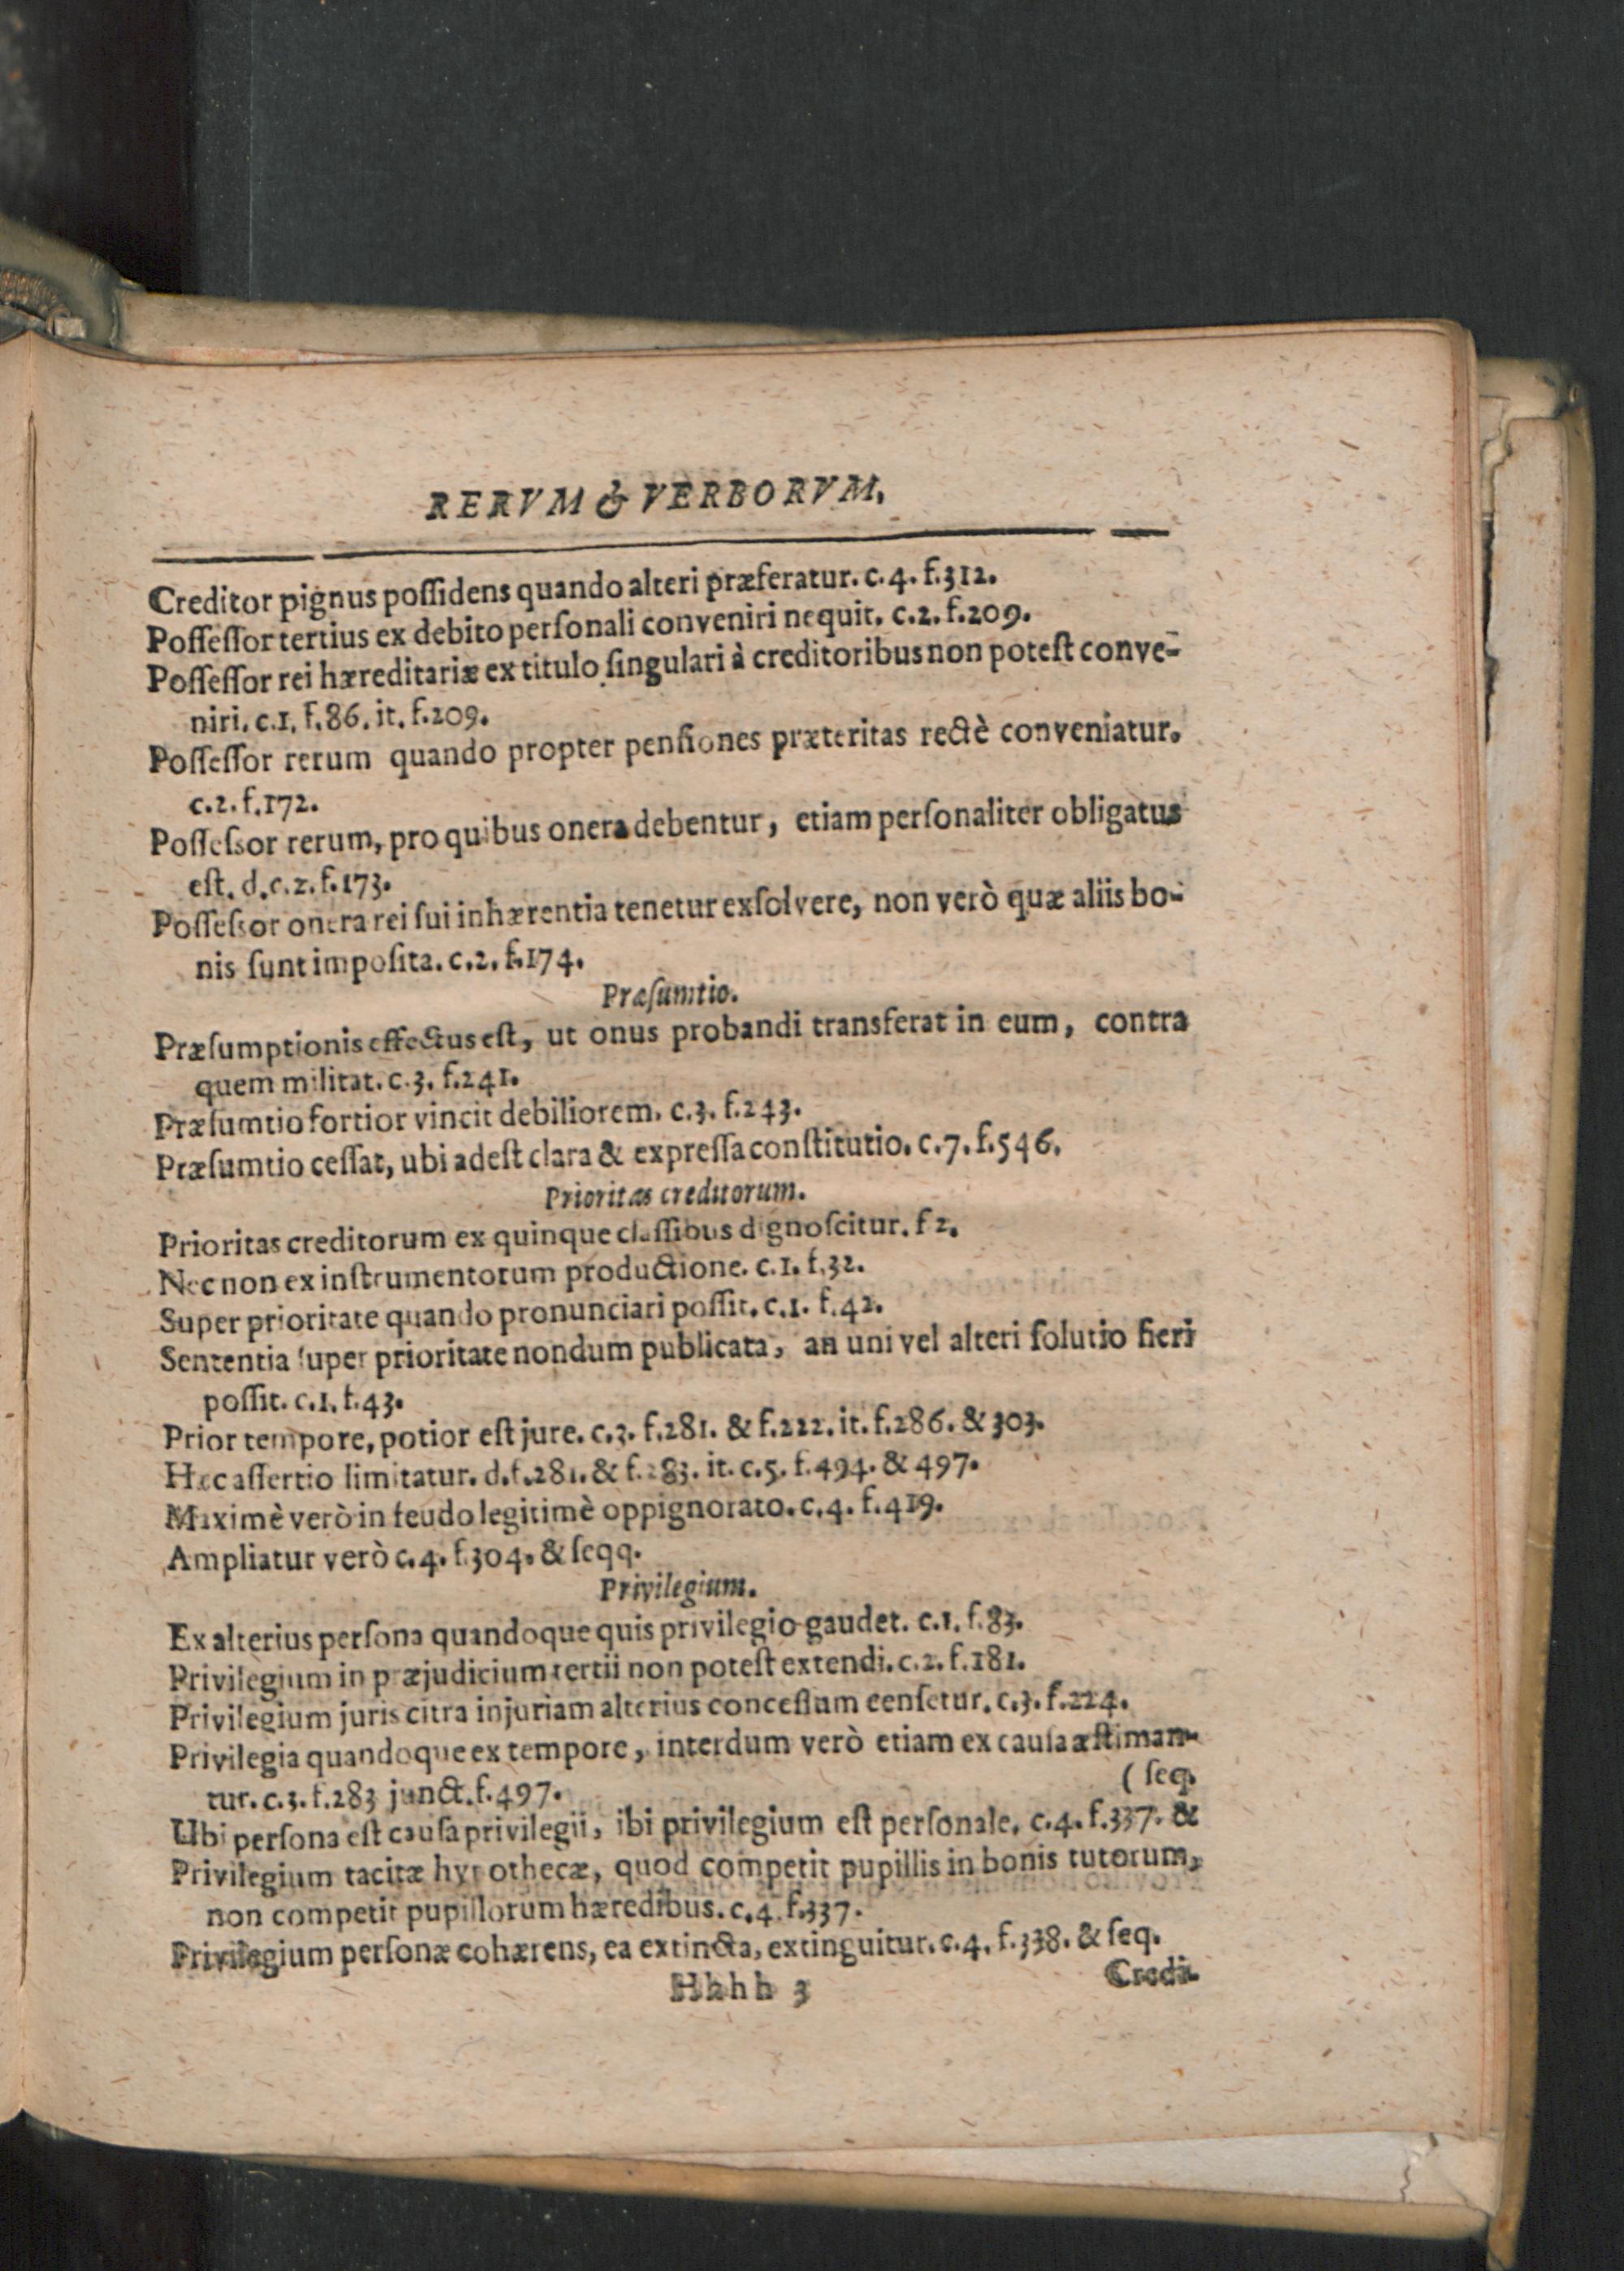 RERVM & VERBORVM.
Creditor pignus poſſidens quando alteri præferatur. c. 4. f.312.
Poſſeſſor tertius ex debito perſonali conveniri nequit. c.2. f.209.
Poſſeſſor rei hæreditariæ ex titulo ſingulari à creditoribus non poteſt conve-
niri. c.1. f.86. it. f.209.
Poſſeſſor rerum quando propter penſiones præteritas rectè conveniatur.
c.2. f.172.
Poſſeſsor rerum, pro quibus onera debentur, etiam perſonaliter obligatus
eſt. d.c.2. f.173.
Poſſeſsor onera rei ſui inhærentia tenetur exſolvere, non verò quæ aliis bo-
nis ſunt impoſita. c.2. f.174.
Præſumtio.
Præſumptionis effectus eſt, ut onus probandi transferat in eum, contra
quem militat. c.3. f.241.
Præſumtio fortior vincit debiliorem. c.3. f.243.
Præſumtio ceſſat, ubi adeſt clara & expreſſa conſtitutio. c.7. f.546.
Prioritas creditorum.
Prioritas creditorum ex quinque claſſibus dignoſcitur. f 2.
Nec non ex inſtrumentorum productione. c.1. f.32.
Super prioritate quando pronunciari poſſit. c.1. f.42.
Sententia ſuper prioritate nondum publicata, an uni vel alteri ſolutio fieri
poſſit. c.1. f.43.
Prior tempore, potior eſt jure. c.3. f.281. & f.222. it. f.286. & 303.
Hæc aſſertio limitatur. d.f.281. & f.283. it. c.5. f.494. & 497.
Maximè verò in feudo legitimè oppignorato. c.4. f.419.
Ampliatur verò c.4. f.304. & ſeqq.
Privilegium.
Ex alterius perſona quandoque quis privilegio gaudet. c.1. f.83.
Privilegium in præjudicium tertii non poteſt extendi. c.2. f.181.
Privilegium juris citra injuriam alterius conceſſum cenſetur. c.3. f.224.
Privilegia quandoque ex tempore, interdum verò etiam ex cauſa æſtiman-
tur. c.3. f.283 junct. f.497. (ſeq.
Ubi perſona eſt cauſa privilegii, ibi privilegium eſt perſonale. c.4. f.337. &
Privilegium tacitæ hypothecæ, quod competit pupillis in bonis tutorum,
non competit pupillorum hæredibus. c.4. f.337.
Privilegium perſonæ cohærens, ea extincta, extinguitur. c.4. f.338. & ſeq.
Hhhh 3 Credi-